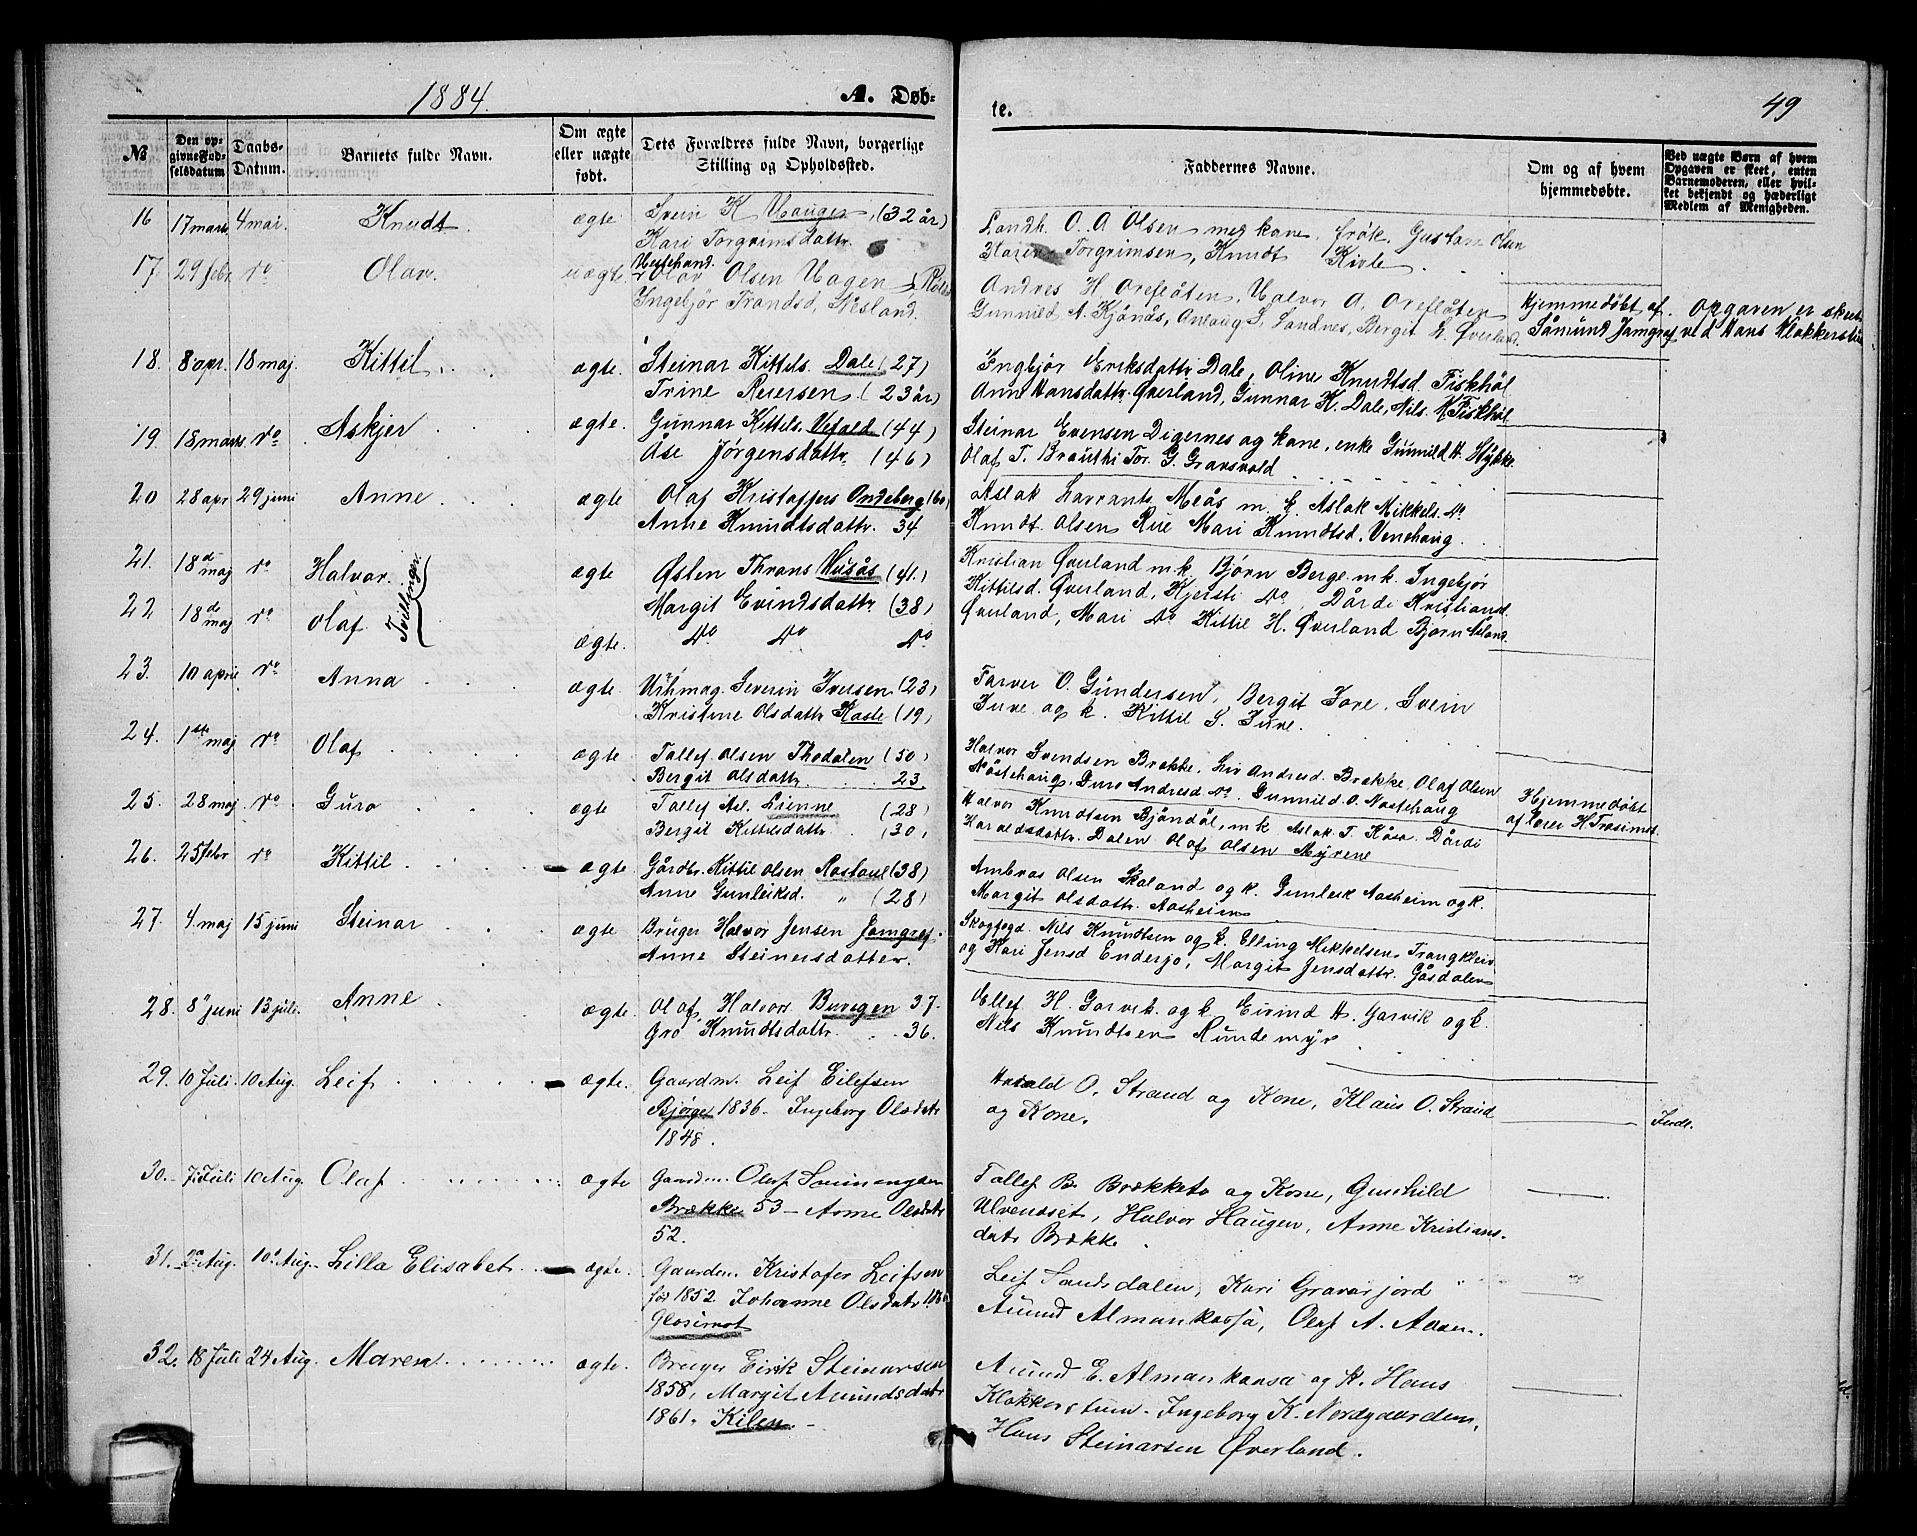 1884.
A. Døb-
te.
49
№
Den op-
givne Fød-
selsdatum
Daabs-
Datum.
Barnets fulde Navn.
Om ægte
eller uægte
født.
Dets Forældres fulde Navn, borgerlige
Stilling og Opholdssted.
Faddernes Navne.
Om og af hvem
hjemmedøbte.
Ved uægte Børn af hvem
Opgaven er skeet, enten
Barnemoderen, eller hvil-
ket bekjendt og hæderligt
Medlem af Menigheden.
16 17 marts 4 mai. Knudt. ægte. Svein K Haugen, (32 år)
Kari Torgrimsdattr.
Landh. O. A Olsen med kane, frøk. Gustava Olsen
Torgrimsen, Knudt Kivle
17. 29 febr. do Olav uægte Olav Olsen Hagen
Ingebjør Trondsd, Nesland.
Andres H Orefloten, Halvor A. Orefloten
Gunnild A. Kjønås, Anlaug S. Sandnes, Bergit G. Øverland
Hjemmedøbt af
Såmund Jamgraf
Opgaven er skeet
ved Hans Klokkerstu
18. 8 apr. 18 maj. Kittil. ægte. Steinar Kittels. Dale (27)
Trine Reiersen (23 år)
Ingbjør Eriksdattr Dale, Oline Knudtsd. Fiskhøl
Anne Hansdattr. Øverland, Gunnar K. Dale, Nils K Fiskhøl
19. 18 marts do Askjer ægte. Gunnar Kittels. Vefald (44)
Åse Jørgensdattr (46)
Steinar Evensen Digernes og kane, enke Gunnild H. Hykke
Olaf T. Brauthi Tor G. Gravsvald
20 28 apr 29 juni Anne ægte Olaf Kristoffers Ondeberg (60)
Anne Knudtsdattr. 34
Aslak Lavrants Meås m. k Aslak Mikkels. do
Knudt Olsen Rue Mari Knudtsd. Venehaug.
21. 18de maj do Halvor. Tvillinger ægte Østen Thrans Husås (41.)
Margit Evindsdattr (38)
Kristian Øverland m.k Bjørn Berge m.k. Ingebjør
Kittilsd. Øverland, Kjersti do Dårdi Kristiansd.
22 18de maj do Olaf ægte. do do do
Øverland, Mari do Kittil H. Øverland Bjørn
23. 10 april do Anna ægte Uhrmag. Severin Iversen (23)
Kristine Olsdattr Kaste (19)
Tarver O. Gundersen, Bergit Jore, Svein
Juve og k. Kittil S. Juve.
24. 1ste maj do Olaf ægte Tallef Olsen Thodalen (50)
Bergit Olsdattr. 23
Halvor Svendsen Brække. Liv Andresd. Brække. Olaf Olsen
Nåstehaug. Guro Andresd do. Gunnild O. Nastehaug
25. 28 maj do Guro ægte Tallef Asl. Lienne (28)
Bergit Kittilsdattr (30)
Halvor Knudtsen Bjåndøl, m.k Aslak T. Kåsa. Dårdi
Haraldsdattr. Dalen Olaf Olsen Myrene
Hjemmedøbt
af Lærer H Trosimot
26. 25 febr do Kittil ægte Gårdbr. Kittil Olsen Rostaul (38)
Anne Gunleiksd. „ (28)
Ambros Olsen Skoland og k. Gunleik Aasheim og k.
Margit Olsdattr. Aasheim
27. 4. maj 15 juni Steinar ægte Bruger Halvor Jensen Jamgraf.
Anne Steinersdatter.
Skogfogd. Nils Knudtsen og k. Elling Mikkelsen Trangkleiv
og Kari Jensd Enderjo, Margit Jensdattr. Gåsdalen
28. 8 juni 13 juli. Anne ægte. Olaf Halvors Buvegen 37.
Gro Knudtsdattr. 36.
Ellef H. Garvik. og k. Eivind H. Garvik og k.
Nils Knudtsen Rundemyr
29. 10 Juli. 10 Aug. Leif ægte. Gaardm. Leif Eilefsen
Bjørge 1836. Ingeborg Olsdatr
1848.
Harald O. Strand og Kone, Klaus O. Strand
og Kone.
Indl.
30. 7 Juli 10 Aug. Olaf ægte Gaardm. Olaf Sveinungsen
Brække 53 – Anne Olsdatr
52.
Tallef B. Brækketo og Kone, Gunhild
Ulvenaset, Halvor Haugen, Anne Kristians-
datr Brække.
31. 2 Aug. 10 Aug. Lilla Elisabet ægte. Gaardm. Kristofer Leifsen
fød 1852. Johanne Olsdatr
Glosimot
Leif Sandsdalen, Kari Gravarjord
Aamund Almankaasa, Olaf A. Aasen.
32. 18 Juli 24 Aug. Maren ægte. Bruger Eirik Steinarsen
1858, Margit Aamundsdatr
1861. Kilen. –
Aamund E. Almankaasa og K. Hans
Klokkerstuen. Ingeborg K. Nordgaarden,
Hans Steinarsen Øverland.